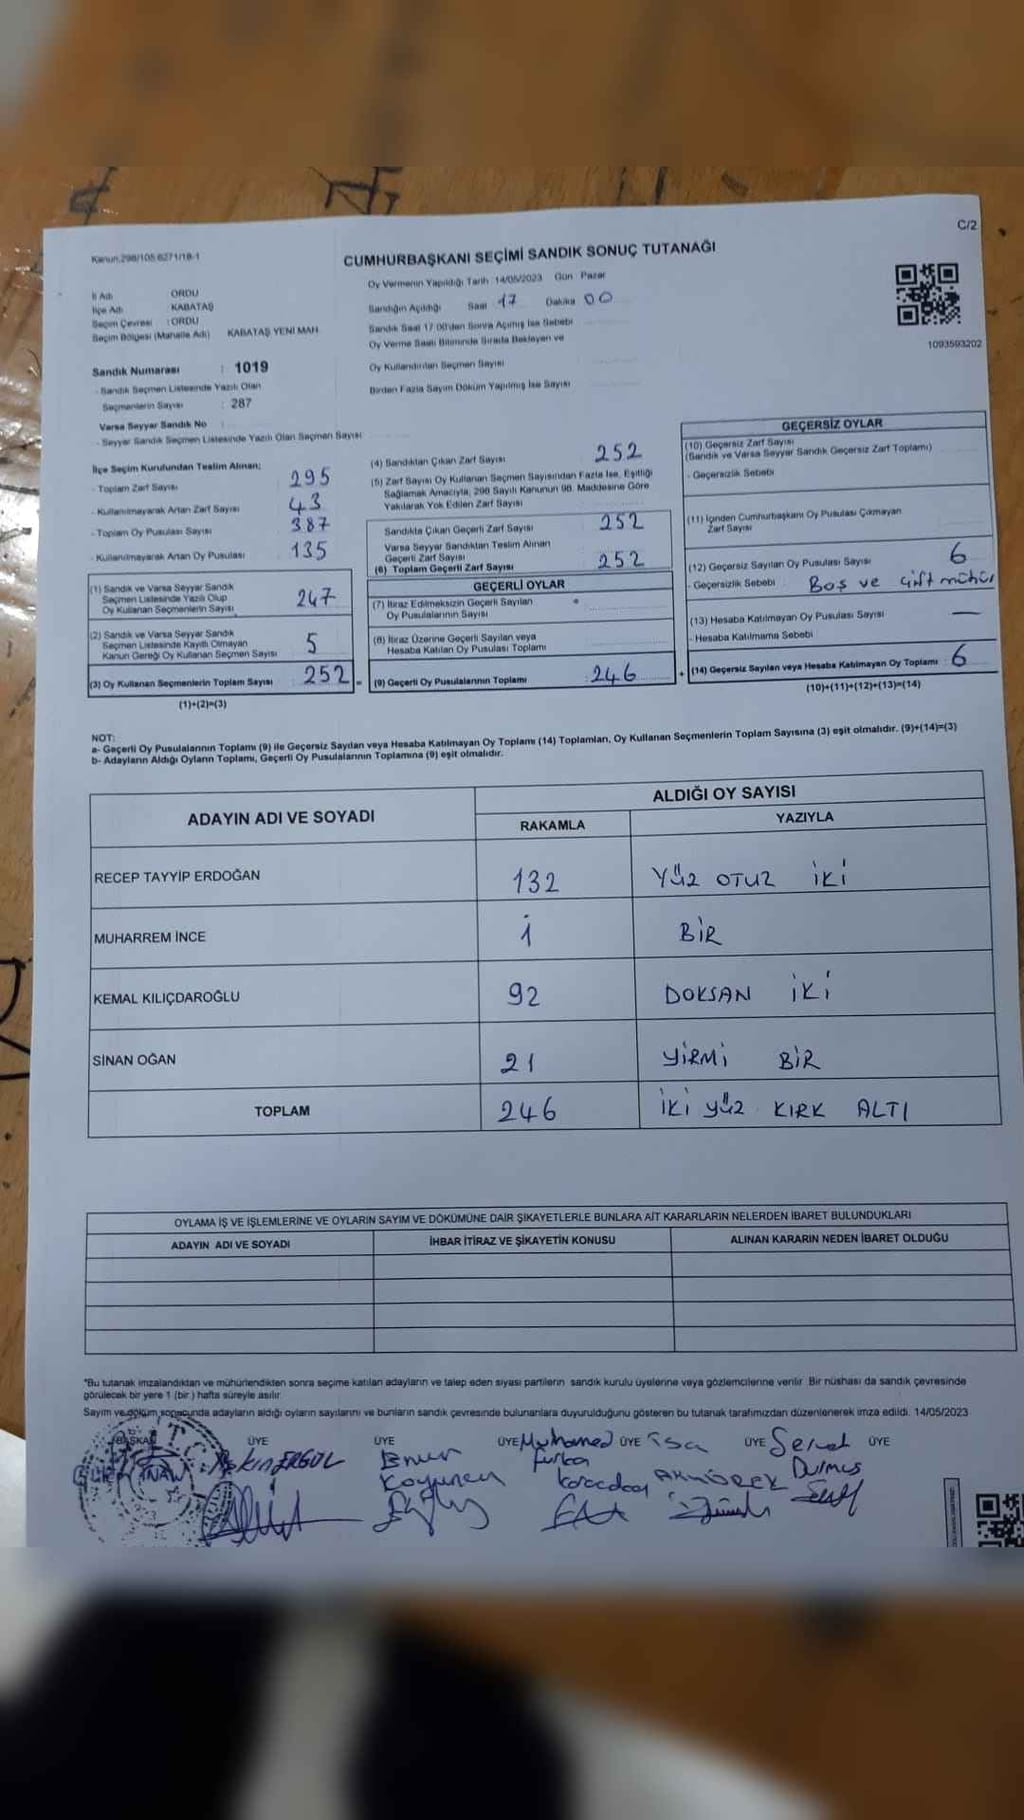 C/2
Kanun:298/105 6271/18-1
CUMHURBAŞKANI SEÇİMİ SANDIK SONUÇ TUTANAĞI
Oy Vermenin Yapıldığı Tarih :14/05/2023 Gün Pazar
İl Adı ORDU
İlçe Adı KABATAŞ
Seçim Çevresi :ORDU
Seçim Bölgesi (Mahalle Adı) KABATAŞ YENİ MAH
Sandığın Açıldığı Saat 17 Dakika 00
Sandık Saat 17.00'den Sonra Açılmış İse Sebebi
Oy Verme Saati Bitiminde Sırada Bekleyen ve
Oy Kullandırılan Seçmen Sayısı
Birden Fazla Sayım Döküm Yapılmış İse Sayısı
1093593202
Sandık Numarası : 1019
- Sandık Seçmen Listesinde Yazılı Olan
Seçmenlerin Sayısı : 287
Varsa Seyyar Sandık No
- Seyyar Sandık Seçmen Listesinde Yazılı Olan Seçmen Sayısı
İlçe Seçim Kurulundan Teslim Alınan;
- Toplam Zarf Sayısı 295
- Kullanılmayarak Artan Zarf Sayısı 43
- Toplam Oy Pusulası Sayısı 387
- Kullanılmayarak Artan Oy Pusulası 135
(1) Sandık ve Varsa Seyyar Sandık
Seçmen Listesinde Yazılı Olup
Oy Kullanan Seçmenlerin Sayısı 247
(2) Sandık ve Varsa Seyyar Sandık
Seçmen Listesinde Kayıtlı Olmayan
Kanun Gereği Oy Kullanan Seçmen Sayısı 5
(3) Oy Kullanan Seçmenlerin Toplam Sayısı 252
(1)+(2)=(3)
(4) Sandıktan Çıkan Zarf Sayısı 252
(5) Zarf Sayısı Oy Kullanan Seçmen Sayısından Fazla İse, Eşitliği
Sağlamak Amacıyla, 298 Sayılı Kanunun 98. Maddesine Göre
Yakılarak Yok Edilen Zarf Sayısı
Sandıkta Çıkan Geçerli Zarf Sayısı 252
Varsa Seyyar Sandıktan Teslim Alınan
Geçerli Zarf Sayısı
(6) Toplam Geçerli Zarf Sayısı 252
GEÇERLİ OYLAR
(7) İtiraz Edilmeksizin Geçerli Sayılan
Oy Pusulalarının Sayısı
(8) İtiraz Üzerine Geçerli Sayılan veya
Hesaba Katılan Oy Pusulası Toplamı
= (9) Geçerli Oy Pusulalarının Toplamı 246
GEÇERSİZ OYLAR
(10) Geçersiz Zarf Sayısı
(Sandık ve Varsa Seyyar Sandık Geçersiz Zarf Toplamı)
- Geçersizlik Sebebi
(11) İçinden Cumhurbaşkanı Oy Pusulası Çıkmayan
Zarf Sayısı
(12) Geçersiz Sayılan Oy Pusulası Sayısı 6
- Geçersizlik Sebebi Boş ve çift mühür
(13) Hesaba Katılmayan Oy Pusulası Sayısı —
- Hesaba Katılmama Sebebi
+ (14) Geçersiz Sayılan veya Hesaba Katılmayan Oy Toplamı 6
(10)+(11)+(12)+(13)=(14)
NOT:
a- Geçerli Oy Pusulalarının Toplamı (9) ile Geçersiz Sayılan veya Hesaba Katılmayan Oy Toplamı (14) Toplamları, Oy Kullanan Seçmenlerin Toplam Sayısına (3) eşit olmalıdır. (9)+(14)=(3)
b- Adayların Aldığı Oyların Toplamı, Geçerli Oy Pusulalarının Toplamına (9) eşit olmalıdır.
ADAYIN ADI VE SOYADI
ALDIĞI OY SAYISI
RAKAMLA YAZIYLA
RECEP TAYYİP ERDOĞAN 132 YÜZ OTUZ İKİ
MUHARREM İNCE 1 BİR
KEMAL KILIÇDAROĞLU 92 DOKSAN İKİ
SİNAN OĞAN 21 YİRMİ BİR
TOPLAM 246 İKİ YÜZ KIRK ALTI
OYLAMA İŞ VE İŞLEMLERİNE VE OYLARIN SAYIM VE DÖKÜMÜNE DAİR ŞİKAYETLERLE BUNLARA AİT KARARLARIN NELERDEN İBARET BULUNDUKLARI
ADAYIN ADI VE SOYADI İHBAR İTİRAZ VE ŞİKAYETİN KONUSU ALINAN KARARIN NEDEN İBARET OLDUĞU
*Bu tutanak imzalandıktan ve mühürlendikten sonra seçime katılan adayların ve talep eden siyasi partilerin sandık kurulu üyelerine veya gözlemcilerine verilir. Bir nüshası da sandık çevresinde
görülecek bir yere 1 (bir) hafta süreyle asılır.
Sayım ve döküm sonucunda adayların aldığı oyların sayılarını ve bunların sandık çevresinde bulunanlara duyurulduğunu gösteren bu tutanak tarafımızdan düzenlenerek imza edildi. 14/05/2023
BAŞKAN ÜYE ÜYE ÜYE Muhamed ÜYE İsa ÜYE Serhat ÜYE
ERGÜL Koyuncu Furkan Karadaş AKYÜREK Durmuş